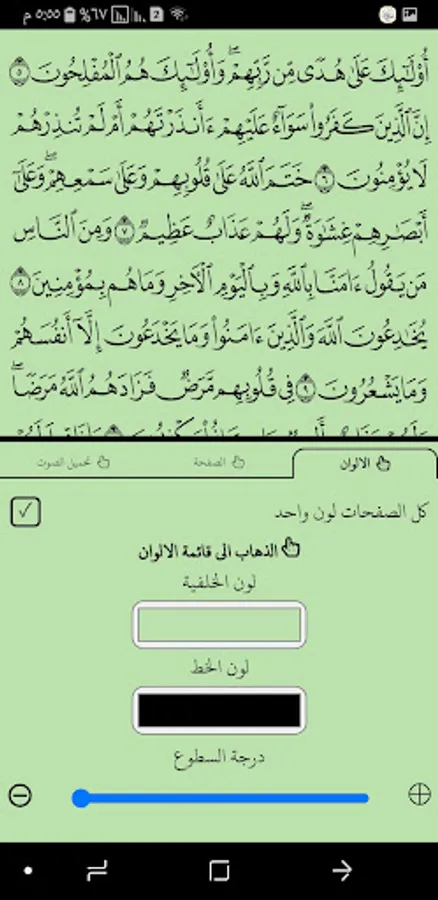 ٥:٥٥ م ٦٧٪
أُوْلَٰٓئِكَ عَلَىٰ هُدٗى مِّن رَّبِّهِمۡۖ وَأُوْلَٰٓئِكَ هُمُ ٱلۡمُفۡلِحُونَ ٥
إِنَّ ٱلَّذِينَ كَفَرُواْ سَوَآءٌ عَلَيۡهِمۡ ءَأَنذَرۡتَهُمۡ أَمۡ لَمۡ تُنذِرۡهُمۡ
لَا يُؤۡمِنُونَ ٦ خَتَمَ ٱللَّهُ عَلَىٰ قُلُوبِهِمۡ وَعَلَىٰ سَمۡعِهِمۡۖ وَعَلَىٰٓ
أَبۡصَٰرِهِمۡ غِشَٰوَةٞۖ وَلَهُمۡ عَذَابٌ عَظِيمٞ ٧ وَمِنَ ٱلنَّاسِ
مَن يَقُولُ ءَامَنَّا بِٱللَّهِ وَبِٱلۡيَوۡمِ ٱلۡأٓخِرِ وَمَا هُم بِمُؤۡمِنِينَ ٨
يُخَٰدِعُونَ ٱللَّهَ وَٱلَّذِينَ ءَامَنُواْ وَمَا يَخۡدَعُونَ إِلَّآ أَنفُسَهُمۡ
وَمَا يَشۡعُرُونَ ٩ فِي قُلُوبِهِم مَّرَضٞ فَزَادَهُمُ ٱللَّهُ مَرَضٗاۖ
الالوان
الصفحة
تحميل الصوت
كل الصفحات لون واحد
الذهاب الى قائمة الالوان
لون الخلفية
لون الخط
درجة السطوع